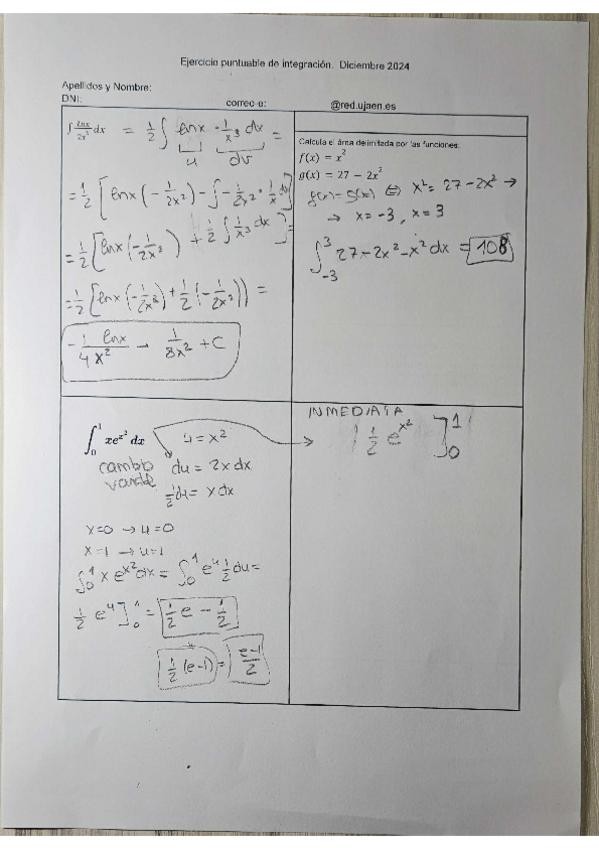 Ejercicio puntuable de integración. Diciembre 2024
Apellidos y Nombre:
DNI: correo-e: @red.ujaen.es
∫ lnx/2x³ dx = 1/2 ∫ lnx · 1/x³ dx =
u dv
= 1/2 [lnx (-1/2x²) - ∫ -1/2x² · 1/x dx]
= 1/2 [lnx (-1/2x²) + 1/2 ∫ 1/x³ dx] =
= 1/2 [lnx (-1/2x²) + 1/2 (-1/2x²)] =
-1/4 lnx/x² - 1/8x² + C
Calcula el área delimitada por las funciones:
f(x) = x²
g(x) = 27 − 2x²
f(x) = g(x) ⇔ x² = 27 - 2x² →
→ x = -3, x = 3
∫₋₃³ 27 - 2x² - x² dx = 108
∫₀¹ xe^x² dx u = x²
cambio du = 2x dx
variable 1/2 du = x dx
x=0 → u=0
x=1 → u=1
∫₀¹ x e^x² dx = ∫₀¹ e^u 1/2 du =
1/2 e^u ]₀¹ = 1/2 e - 1/2
1/2 (e-1) = e-1/2
INMEDIATA
1/2 e^x² ]₀¹